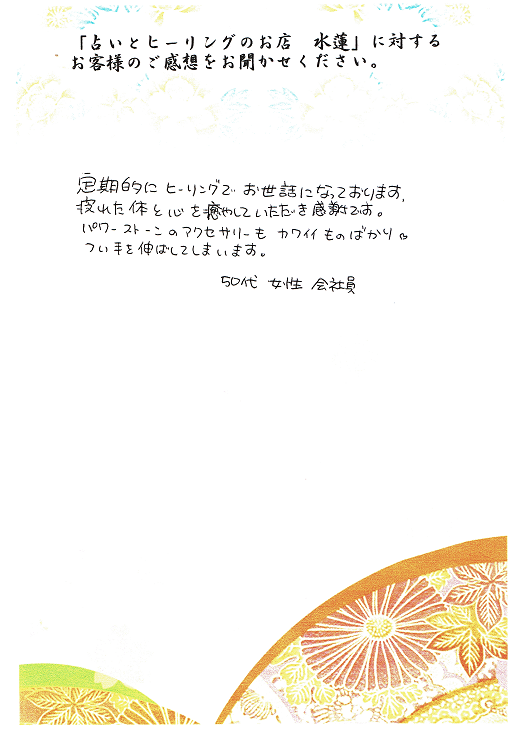 「占いとヒーリングのお店　水蓮」に対する
お客様のご感想をお聞かせください。
定期的に ヒーリングで お世話になっております。
疲れた体と心を癒やしていただき感謝です。
パワーストーンのアクセサリーも カワイイものばかりで
つい手を伸ばしてしまいます。
50代 女性 会社員